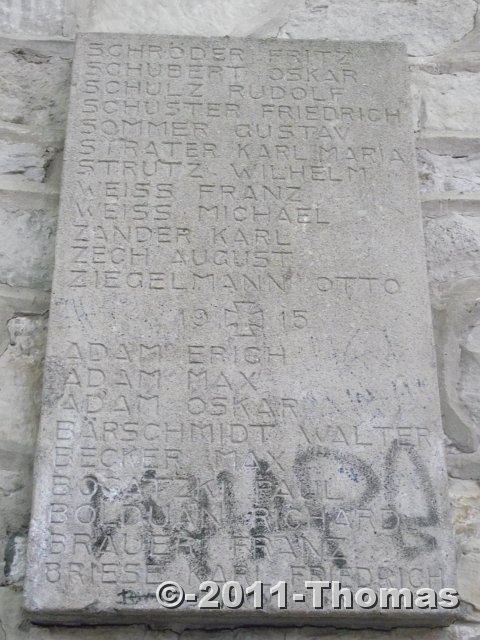 SCHRÖDER FRITZ
SCHUBERT OSKAR
SCHULZ RUDOLF
SCHUSTER FRIEDRICH
SOMMER GUSTAV
STRATER KARL MARIA
STRUTZ WILHELM
WEISS FRANZ
WEISS MICHAEL
ZANDER KARL
ZECH AUGUST
ZIEGELMANN OTTO
19 15
ADAM ERICH
ADAM MAX
ADAM OSKAR
BÄRSCHMIDT WALTER
BECKER MAX
PAUL
BOLDUAN RICHARD
BRAUER FRANZ
FRIEDRICH
©-2011-Thomas